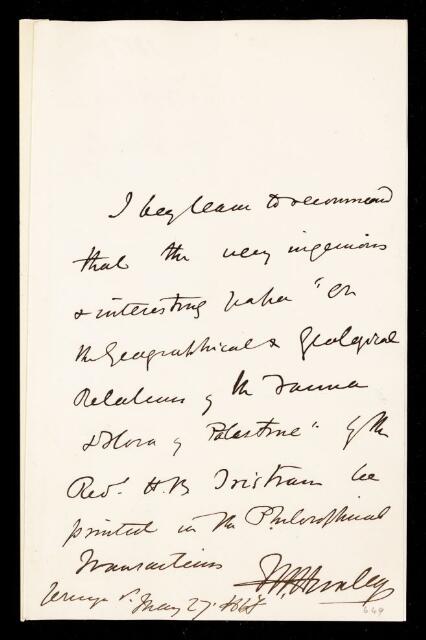 I beg leave to recommend
that the very ingenious
& interesting paper "On
the Geographical & Geological
Relations of the Fauna
& Flora of Palestine" by the
Revd. H.B Tristram be
printed in the Philosophical
Transactions
THHuxley
Jermyn St. May 27. 1868
649